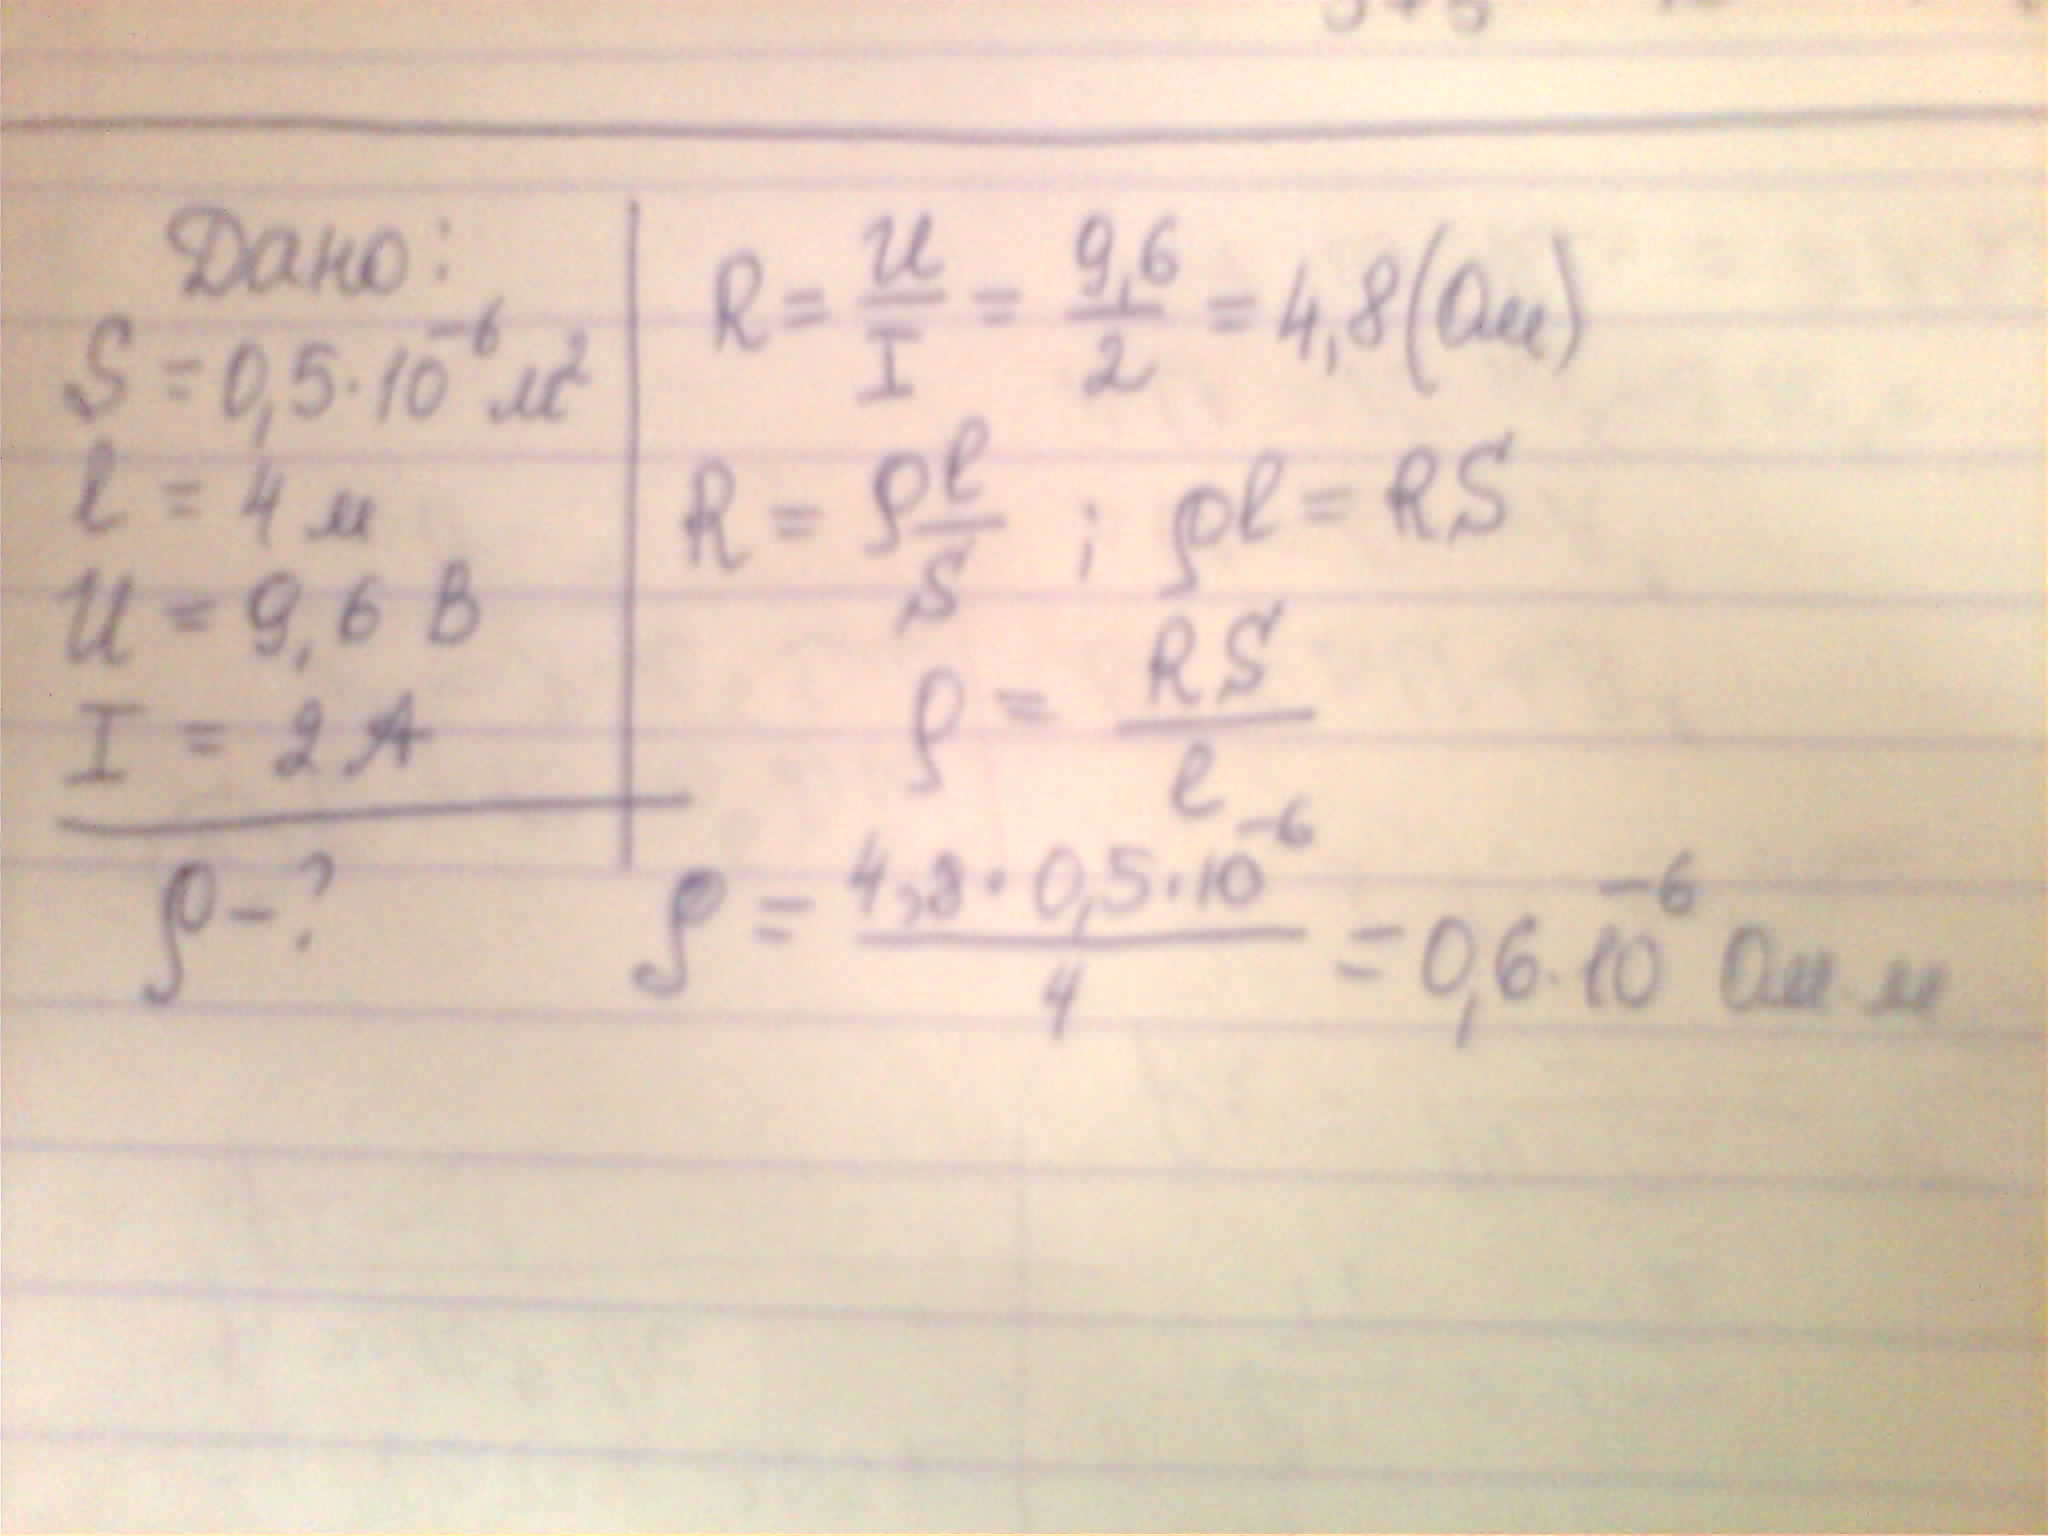 Дано:
S = 0,5·10⁻⁶ м²
l = 4 м
U = 9,6 В
I = 2 А
ρ – ?
R = U/I = 9,6/2 = 4,8 (Ом)
R = ρ l/S ; ρl = RS
ρ = RS/l
ρ = 4,8·0,5·10⁻⁶/4 = 0,6·10⁻⁶ Ом м